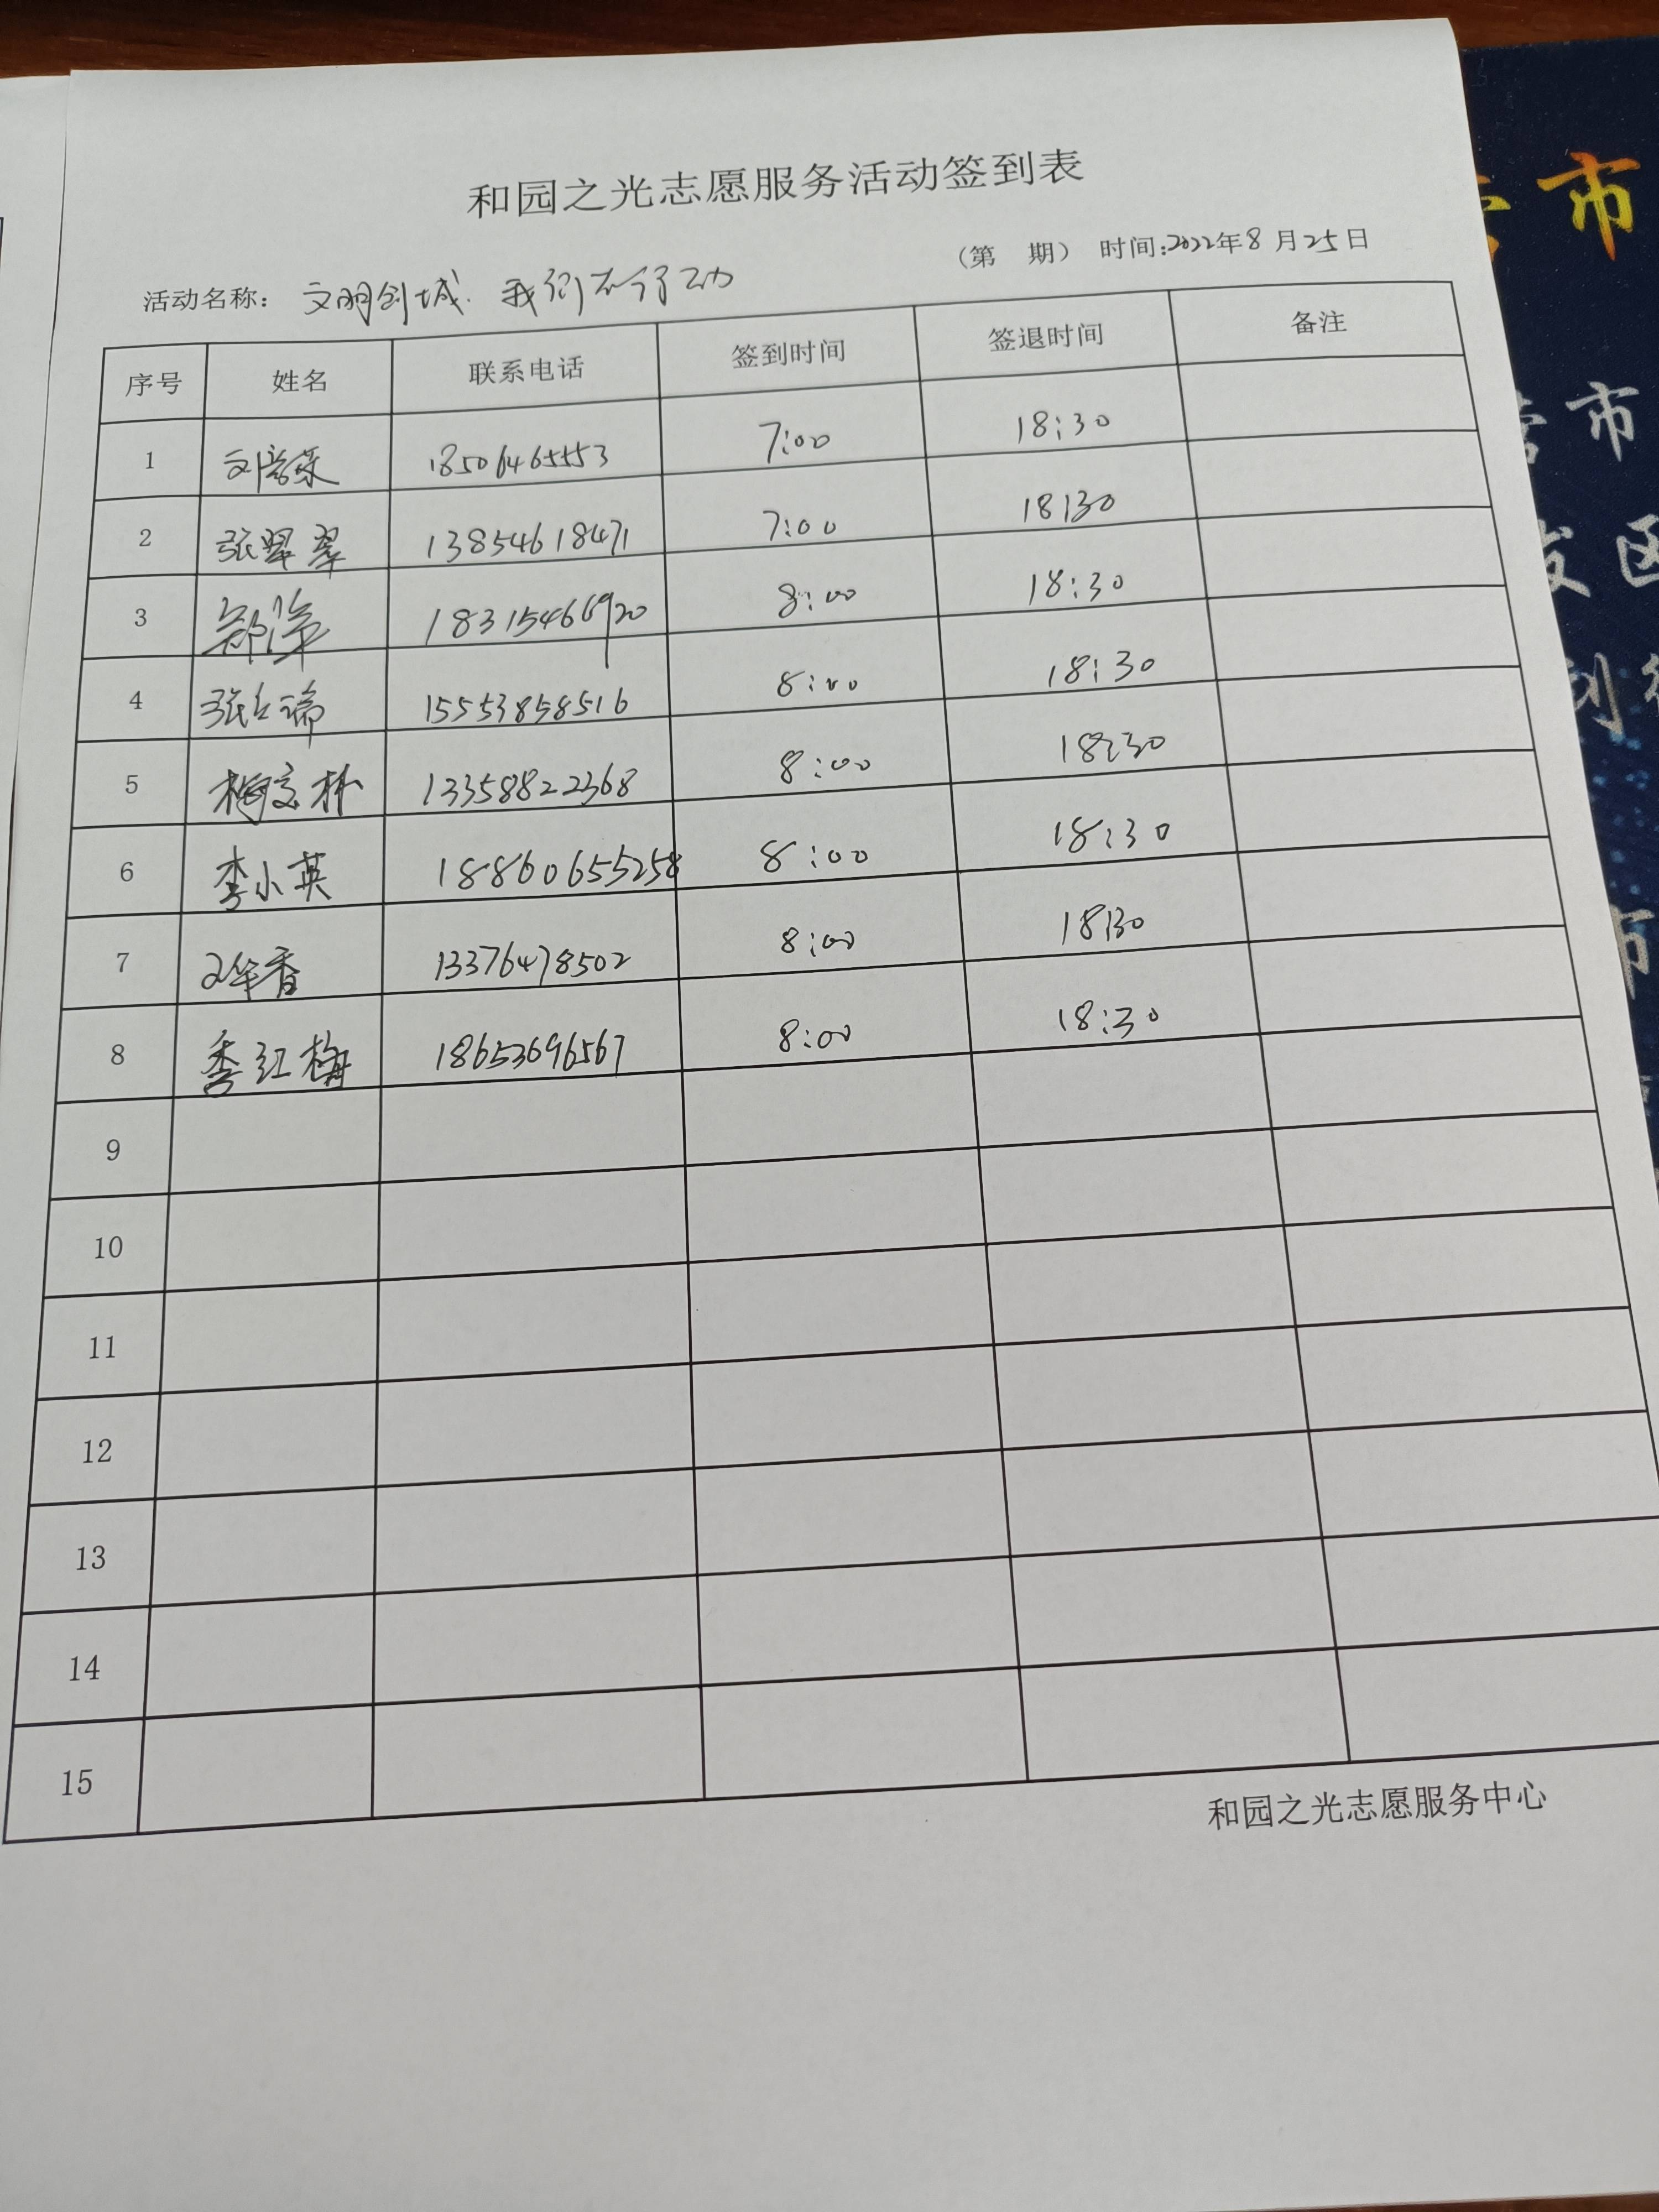 和园之光志愿服务活动签到表
（第 期） 时间:2022年8月25日
活动名称： 文明创城. 我们在行动
序号 姓名 联系电话 签到时间 签退时间 备注
1 18506465553 7:00 18:30
2 张翠翠 13854618471 7:00 18:30
3 郑萍 18315466920 8:00 18:30
4 15553858516 8:00 18:30
5 13358822368 8:00 18:30
6 李小英 18860655258 8:00 18:30
7 13376478502 8:00 18:30
8 季红梅 18653696567 8:00 18:30
9
10
11
12
13
14
15
和园之光志愿服务中心
市
市
发区
划
市